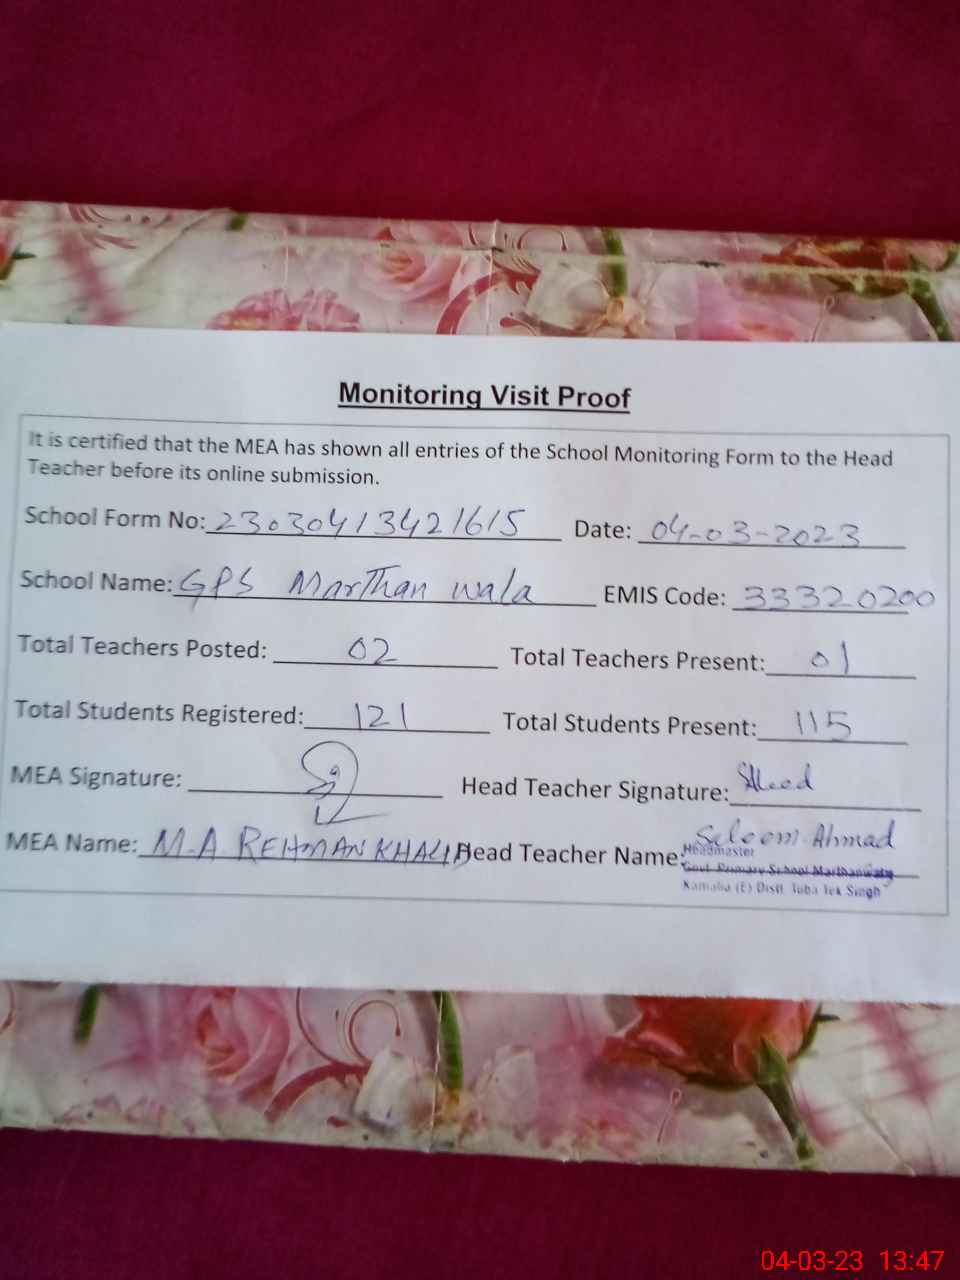 Monitoring Visit Proof
It is certified that the MEA has shown all entries of the School Monitoring Form to the Head
Teacher before its online submission.
School Form No: 23030413421615 Date: 04-03-2023
School Name: GPS Marthan wala EMIS Code: 33320200
Total Teachers Posted: 02 Total Teachers Present: 01
Total Students Registered: 121 Total Students Present: 115
MEA Signature: Head Teacher Signature:
MEA Name: M.A REHMAN KHALID Head Teacher Name: Saleem Ahmad
Headmaster
Govt. Primary School Marthanwala
Kamalia (E) Distt. Toba Tek Singh
04-03-23 13:47